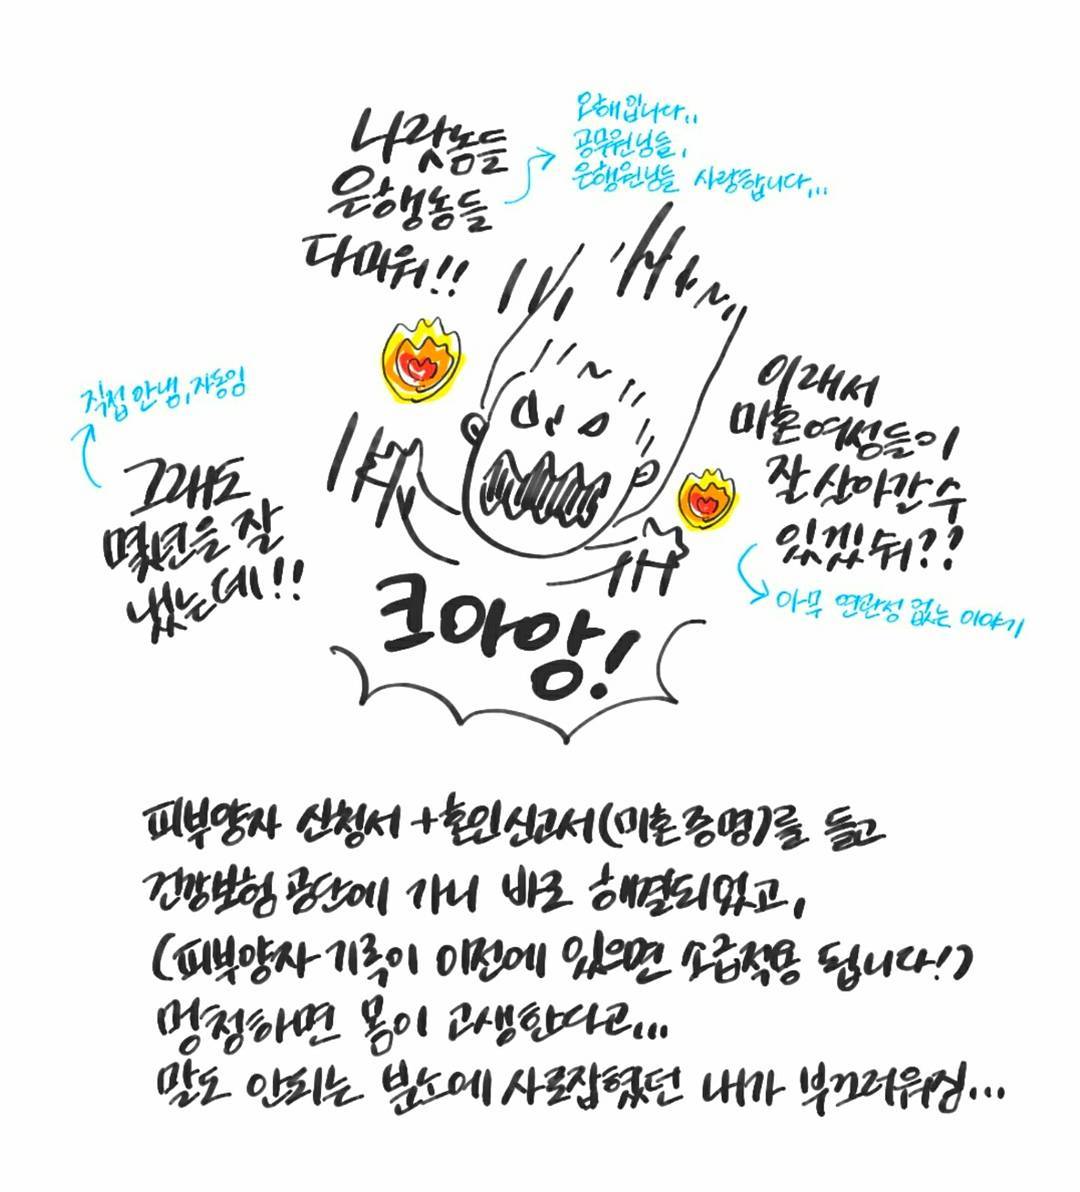 나랏놈들
은행놈들
다 미워!!
오해입니다..
공무원님들,
은행원님들 사랑합니다...
직접 안냄, 자동임
그래도
몇년을 잘
냈는데!!
이래서
미혼여성들이
잘 살아갈 수
있겠숴??
아무 연관성 없는 이야기
크아앙!
피부양자 신청서 + 혼인신고서(미혼 증명)를 들고
건강보험 공단에 가니 바로 해결되었고,
(피부양자 기록이 이전에 있으면 소급적용 됩니다!)
멍청하면 몸이 고생한다고...
말도 안되는 분노에 사로잡혔던 내가 부끄러워짐...